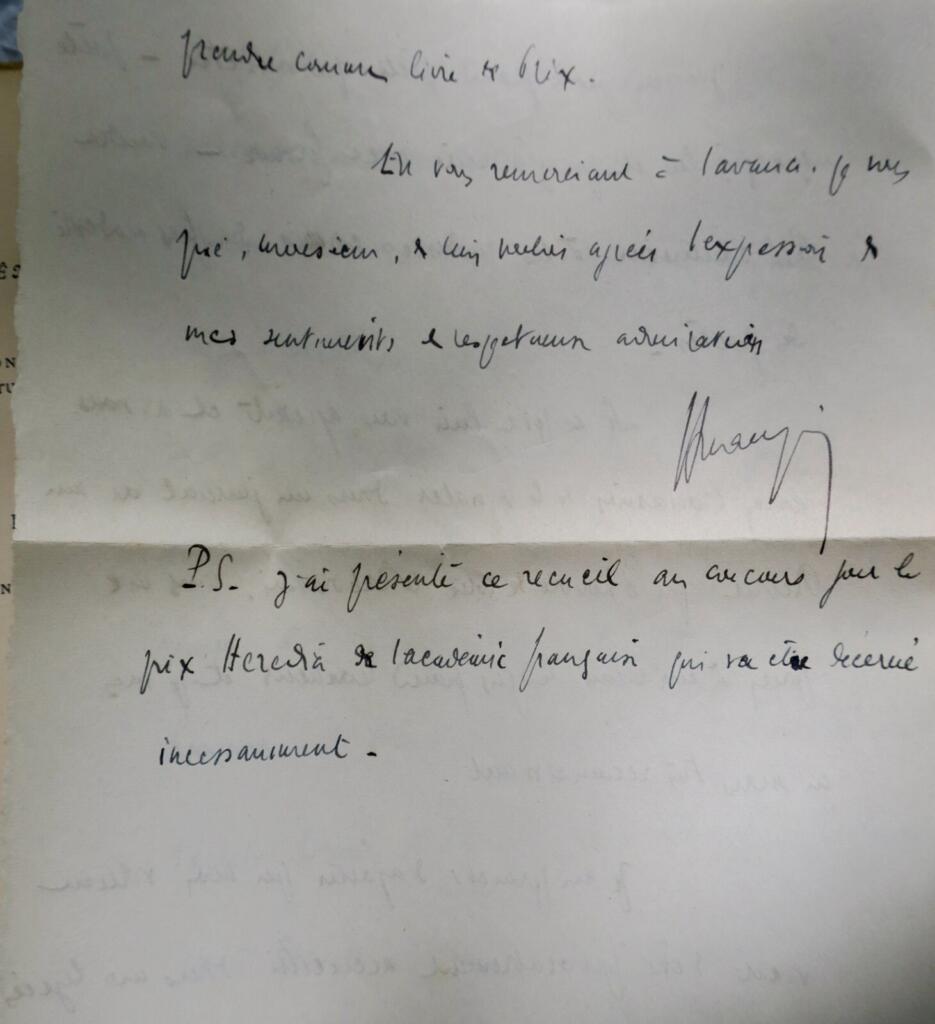 prendre comme livre de Prix.
En vous remerciant à l'avance. je vous
prie, monsieur, de bien vouloir agréer l'expression de
mes sentiments de respectueuse admiration
P.S. - J'ai présenté ce recueil au concours pour le
prix Heredia de l'académie française qui va être décerné
incessamment -